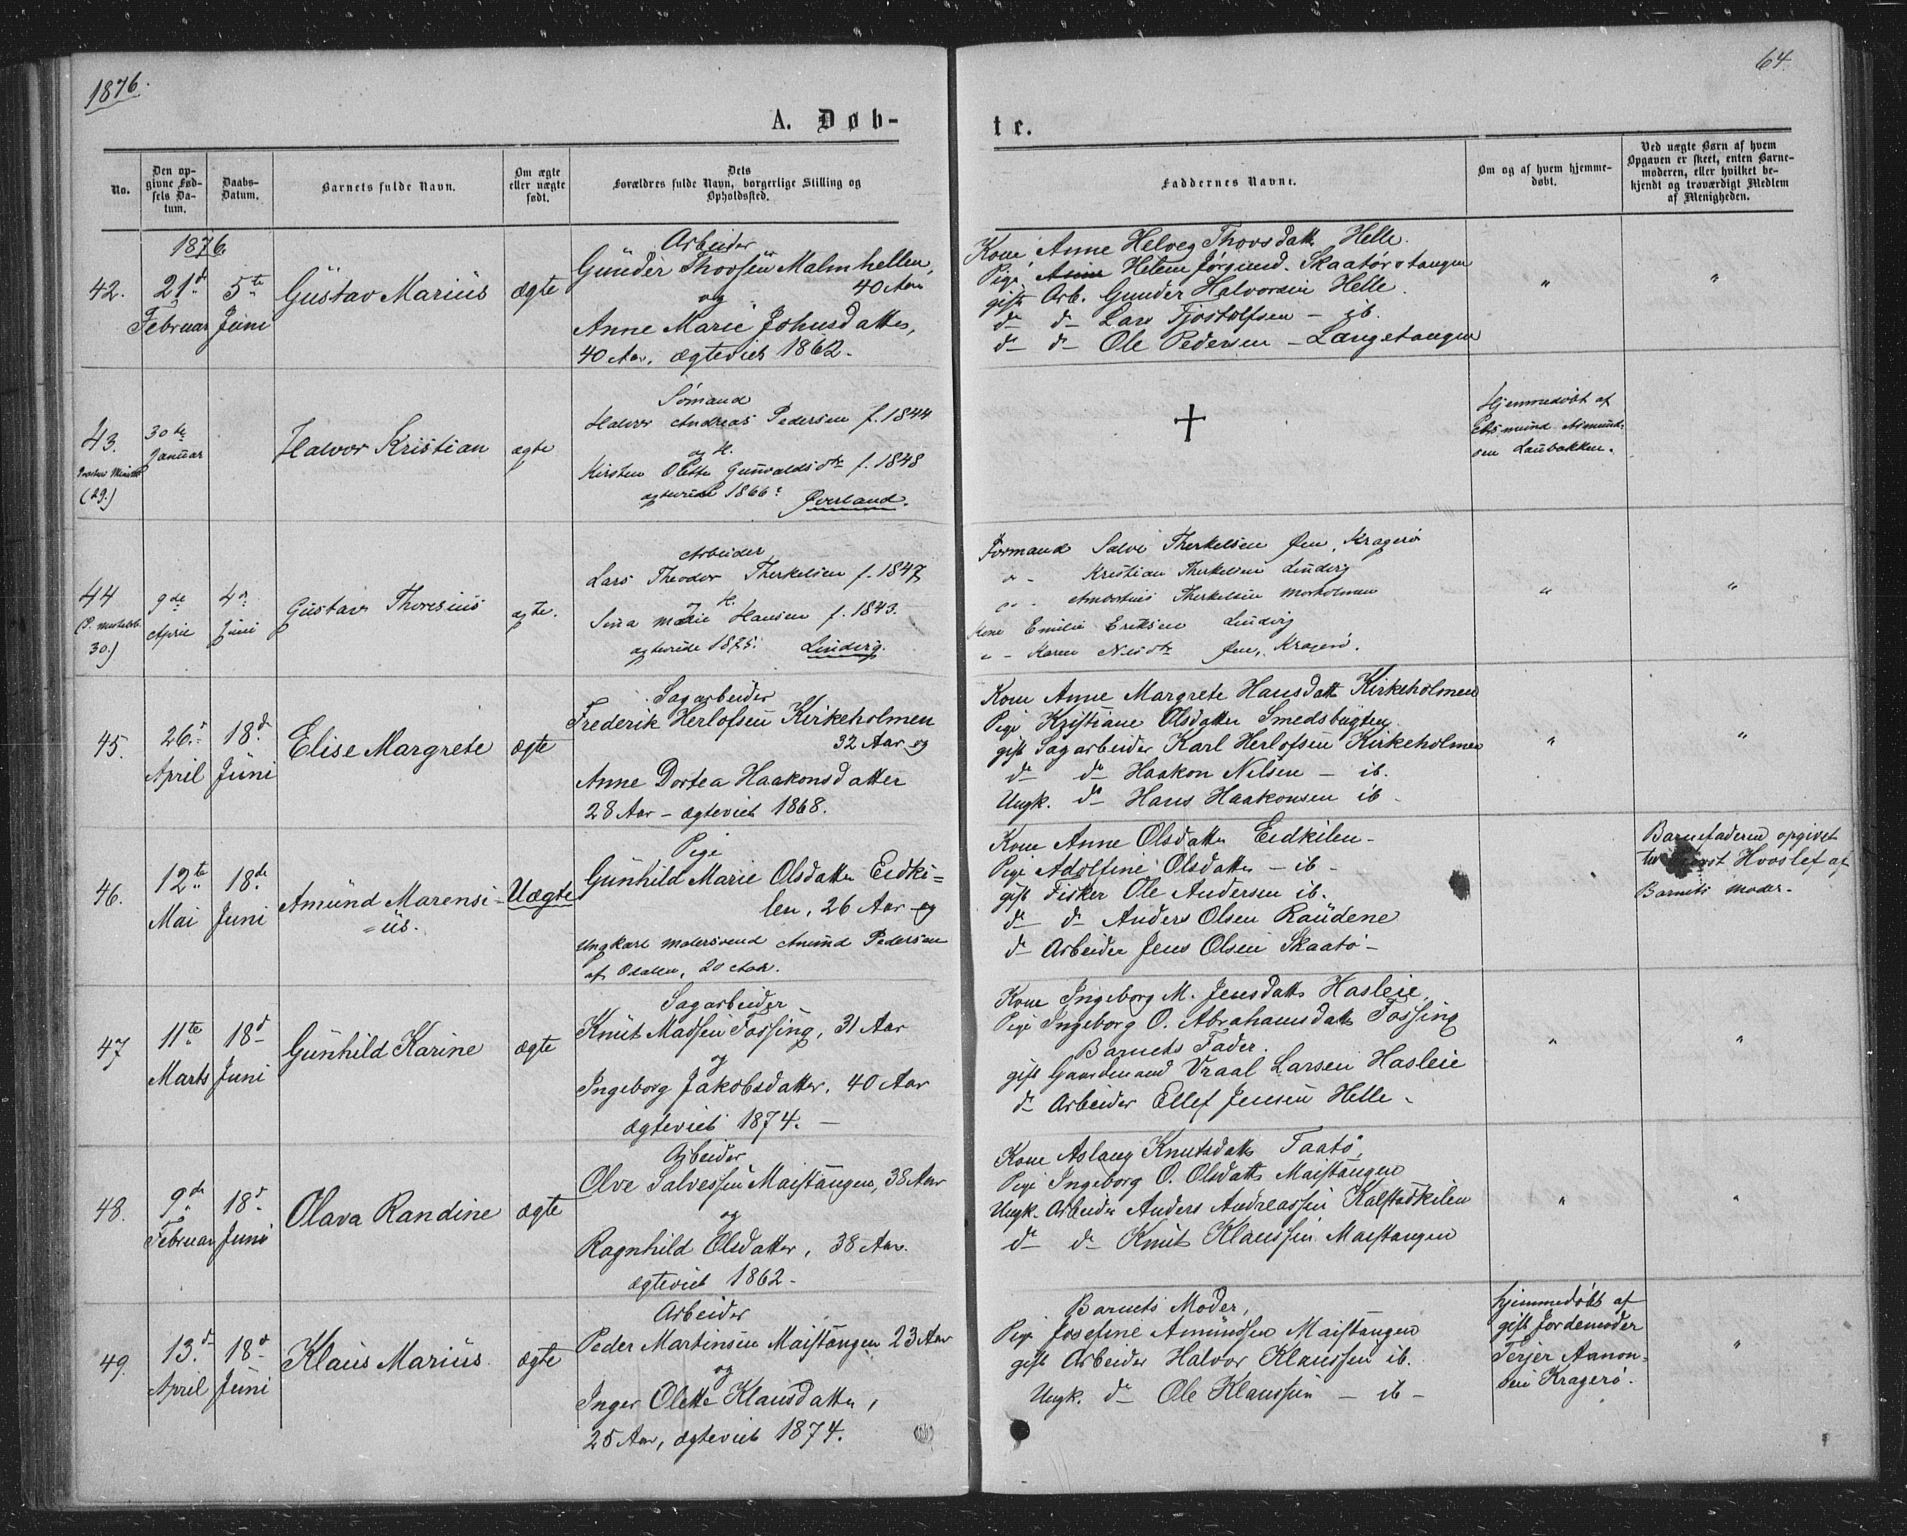 1876.
64.
A. Døb-
te.
No.
Den op-
givne Fød-
sels Da-
tum.
Daabs-
Datum.
Barnets fulde Navn.
Om ægte
eller uægte
født.
Dets
Forældres fulde Navn, borgerlige Stilling og
Opholdssted.
Faddernes Navne.
Om og af hvem hjemme-
døbt.
Ved uægte Børn af hvem
Opgaven er skeet, enten Barne-
moderen, eller hvilket be-
kjendt og troværdigt Medlem
af Menigheden.
1876.
42.
21d
Februar
5te
Juni
Gustav Marius
ægte
Arbeider
Gunder Thovsen Malmhellen,
40 Aar
og
Anne Marie Johnsdatter,
40 Aar, ægteviet 1862.
Kone Anne Helveg Thovsdatt Helle.
Pige Helene Jørgensd. Skaatørstangen
gift Arb. Gunder Halvorsen Helle.
do do Lars Tjostolfsen - ib.
do do Ole Pedersen - Langetangen
"
"
43.
(29.)
30te
Januar
Halvor Kristian
ægte
Sømand
Halvor Andreas Pedersen f. 1844
og H.
Kirsten Olette Gunvaldsdtr f. 1848
ægteviede 1866: Øverland.
+
Hjemmedøbt af
Asmund-
sen Laubakken.
44
30.)
9de
April
4de
Juni
Gustav Thoresius
ægte.
Arbeider
Lars Theodor Therkelsen f. 1847
og H.
Sina Marie Hansen f. 1843.
ægteviede 1875: Lindvig.
Formand Salve Therkelsen Øen, Kragerø
" - Kristian Therkelsen Lindvig
" - Therkelsen Morholmen
Kone Emilie Eriksen Lindvig
" - Karen Nilsdtr Øen, Kragerø.
"
"
45.
26d
April
18d
Juni
Elise Margrete
ægte
Sagarbeider
Frederik Herlofsen Kirkeholmen
32 Aar og
Anne Dortea Haakonsdatter
28 Aar - ægteviet 1868.
Kone Anne Margrete Hansdatt Kirkeholmen
Pige Kristiane Olsdatter Smedsbugten
gift Sagarbeider Karl Herlofsen Kirkeholmen
do do Haakon Nilsen - ib.
Ungk. do Hans Haakonsen ib -
"
"
46.
12te
Mai
18de
Juni
Amund Marensi-
=us.
Uægte
Pige
Gunhild Marie Olsdatter Eidki=
len, 26 Aar og
Ungkarl Malersvend Amund Pedersen
af Odalen, 20 Aar.
Kone Anne Olsdatter Eidkilen -
Pige Adolfine Olsdatter - ib -
gift Fisker Ole Andersen ib.
do do Anders Olsen Raudene
do Arbeider Jens Olsen Skaatø -
Barnefaderen opgivet
af
Barnets Moder.
47
11te
Marts
18d
Juni
Gunhild Karine
ægte
Sagarbeider
Knut Madsen Fossing, 31 Aar
og
Ingeborg Jakobsdatter, 40 Aar
ægteviet 1874. -
Kone Ingeborg M. Jensdatt Hasleie,
Pige Ingeborg O. Abrahamsdatt Fossing
Barnets Fader.
gift Gaardmand Vraal Larsen Hasleie
do Arbeider Ellef Jensen Helle -
"
"
48.
9de
Februar
18d
Juni
Olava Randine
ægte
Arbeider
Olve Salvessen Maistangen, 38 Aar
og
Ragnhild Olsdatter, 38 Aar.
ægteviet 1862 -
Kone Aslaug Knutsdatt Taatø,
Pige Ingeborg O. Olsdatt Maistangen
Ungk. Arbeider Anders Andreassen Kalstadkilen
do do Knut Klaussen Maistangen
"
"
49.
13d
April
18d
Juni
Klaus Marius
ægte
Arbeider
Peder Martinsen Maistangen 23 Aar
og
Inger Olette Klausdatter,
25 Aar, ægteviet 1874.
Barnets Moder,
Pige Josefine Amundsen Maistangen
gift Arbeider Halvor Klaussen ib.
Ungk. do Ole Klaussen - ib -
hjemmedøbt af
gift Jordemoder
Terjer Aanon-
sen Kragerø.
"